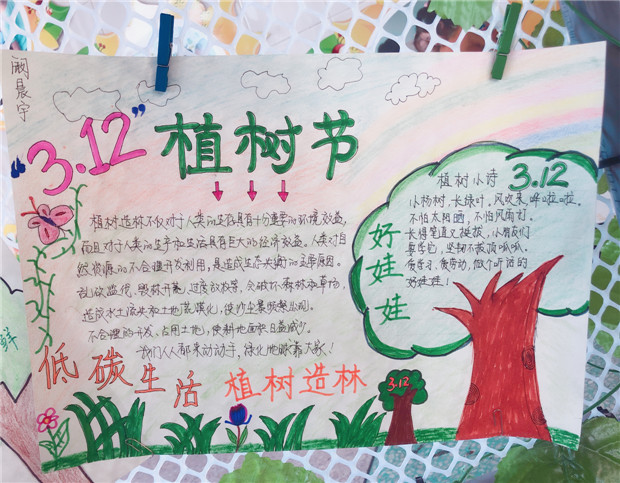 阚晨宇
"3.12"植树节
植树造林不仅对于人类的生存具有十分重要的环境效益,
而且对于人类的生产和生活具有巨大的经济效益。人类对自
然资源的不合理开发利用,是造成生态失衡的主要原因。
乱砍盗伐,毁林开垦,过度放牧等,会破坏森林和草场,
造成水土流失和土地荒漠化,使沙尘暴频繁出现。
不合理的开发、占用土地,使耕地面积日益减少。
我们人人都来动动手,绿化地球靠大家!
低碳生活 植树造林
3.12
植树小诗 3.12
小杨树,长绿叶,风吹来,哗啦啦。
不怕太阳晒,不怕风雨打。
长得笔直又挺拔,小朋友们
要学它,坚韧不拔顶呱呱。
爱学习,爱劳动,做个听话的
好娃娃!
好娃娃
鲜